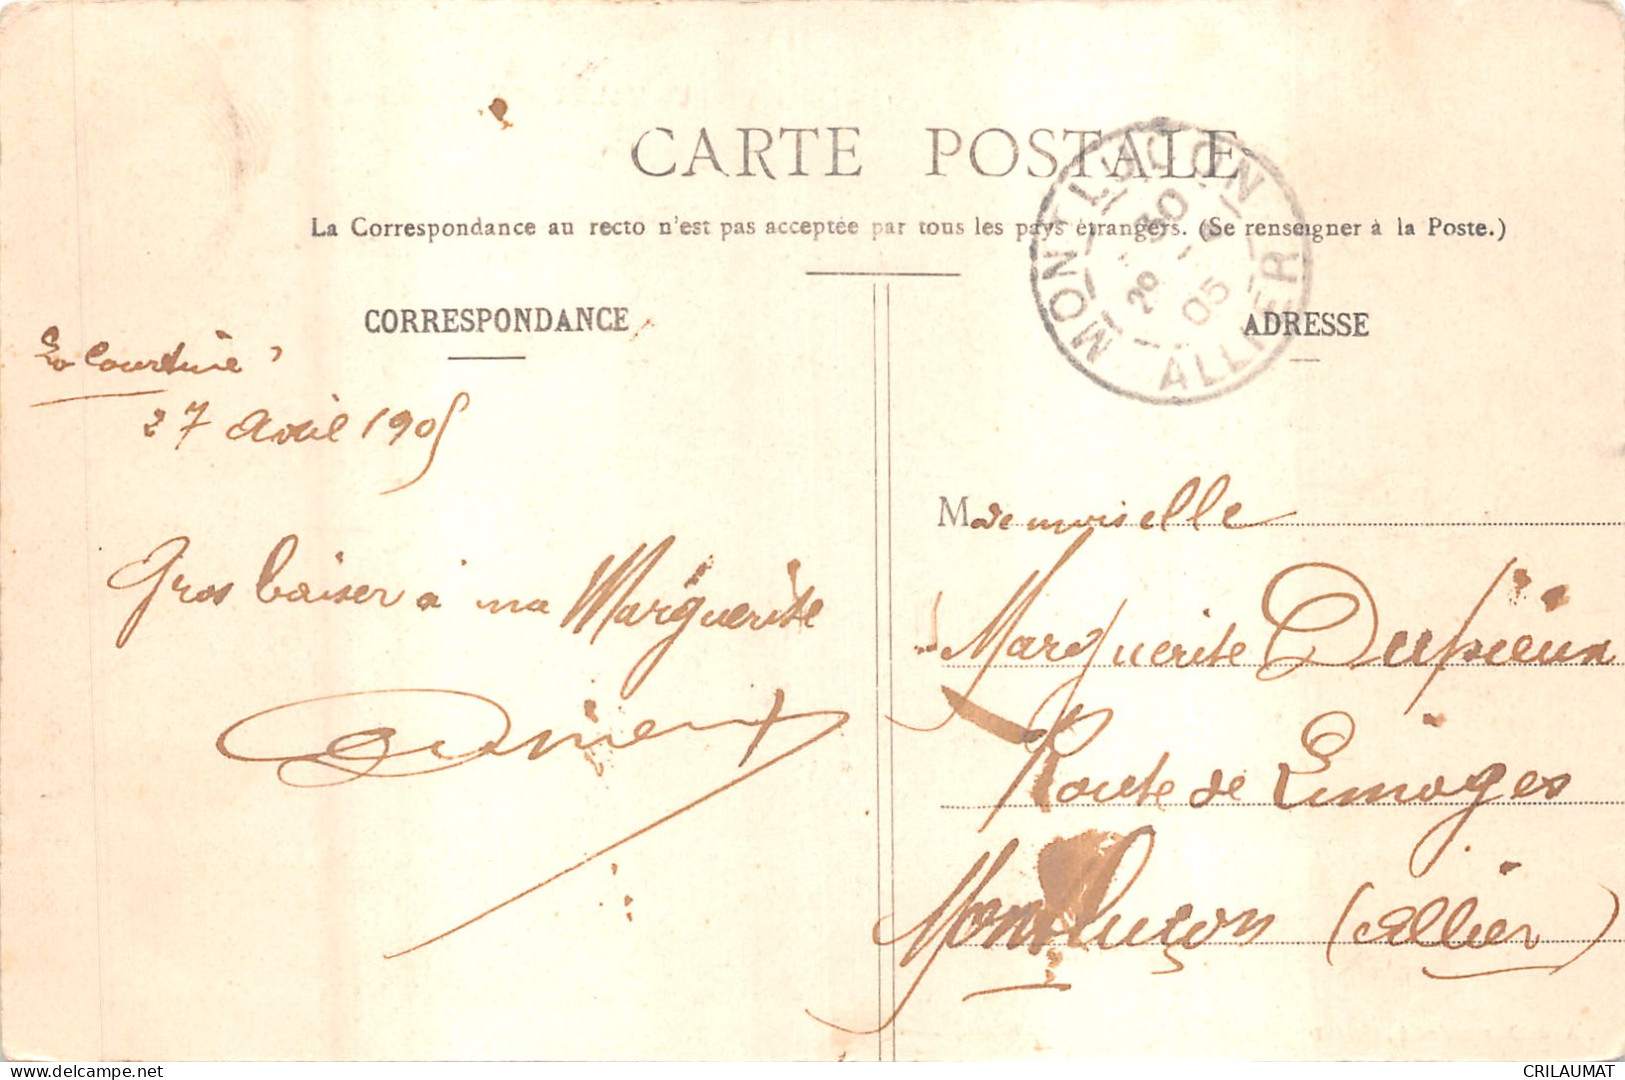 CARTE POSTALE
La Correspondance au recto n'est pas acceptée par tous les pays étrangers. (Se renseigner à la Poste.)
CORRESPONDANCE
La Courtine
27 avril 1905
Gros baiser à ma Marguerite
ADRESSE
MONTLUÇON
30
28 4
05
ALLIER
Mademoiselle
Marguerite Dupieux
Route de Limoges
Montluçon (Allier)
delcampe.net
CRILAUMAT